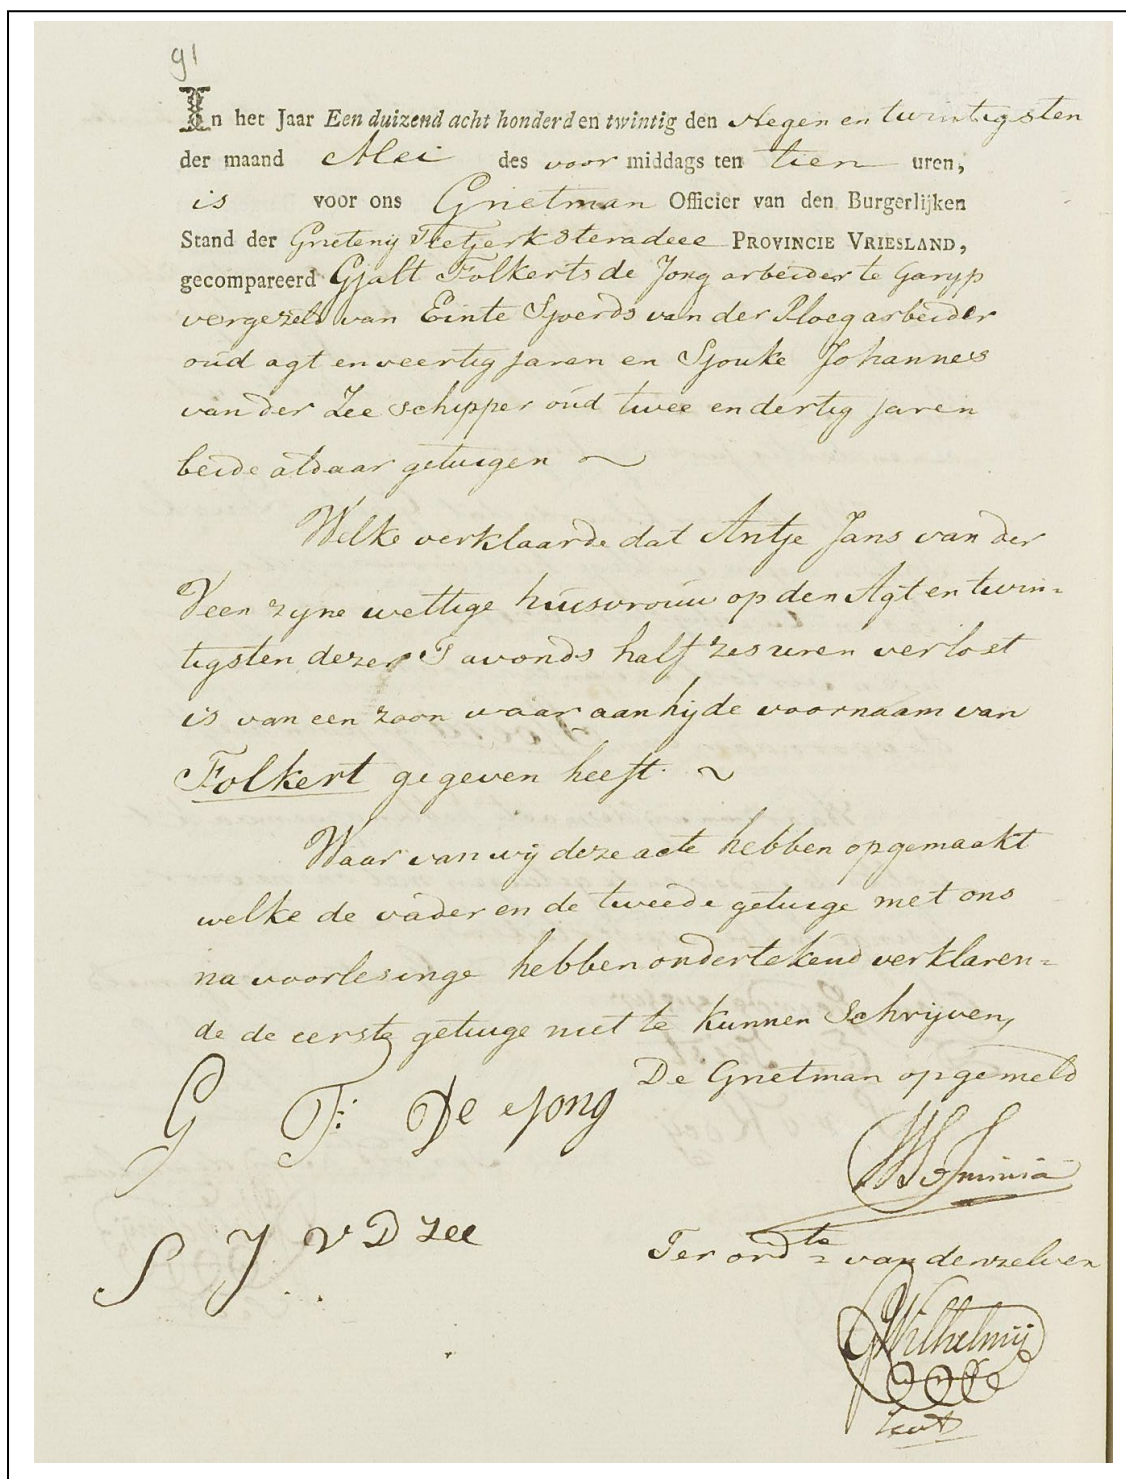 91
In het Jaar Een duizend acht honderd en twintig den Negen en twintigsten
der maand Mei des voor middags ten tien uren,
is voor ons Grietman Officier van den Burgerlijken
Stand der Grietenij Tietjerksteradeel PROVINCIE VRIESLAND,
gecompareerd Gjalt Folkerts de Jong arbeider te Garyp
vergezeld van Einte Sjoerds van der Ploeg arbeider
oud agt en veertig jaren en Sjouke Johannes
van der Zee schipper oud twee en dertig jaren
beide aldaar getuigen ~
Welke verklaarde dat Antje Jans van der
Veen zyne wettige huisvrouw op den Agt en twin=
tigsten dezer S avonds half zes uren verlost
is van een zoon waar aan hij de voornaam van
Folkert gegeven heeft. ~
Waar van wij deze acte hebben opgemaakt
welke de vader en de tweede getuige met ons
na voorlesinge hebben ondertekend verklaren=
de de eerste getuige niet te kunnen Schrijven,
De Grietman opgemeld
G F: De Jong
S J V D Zee
Ter ordte van denzelven
Wilhelmij